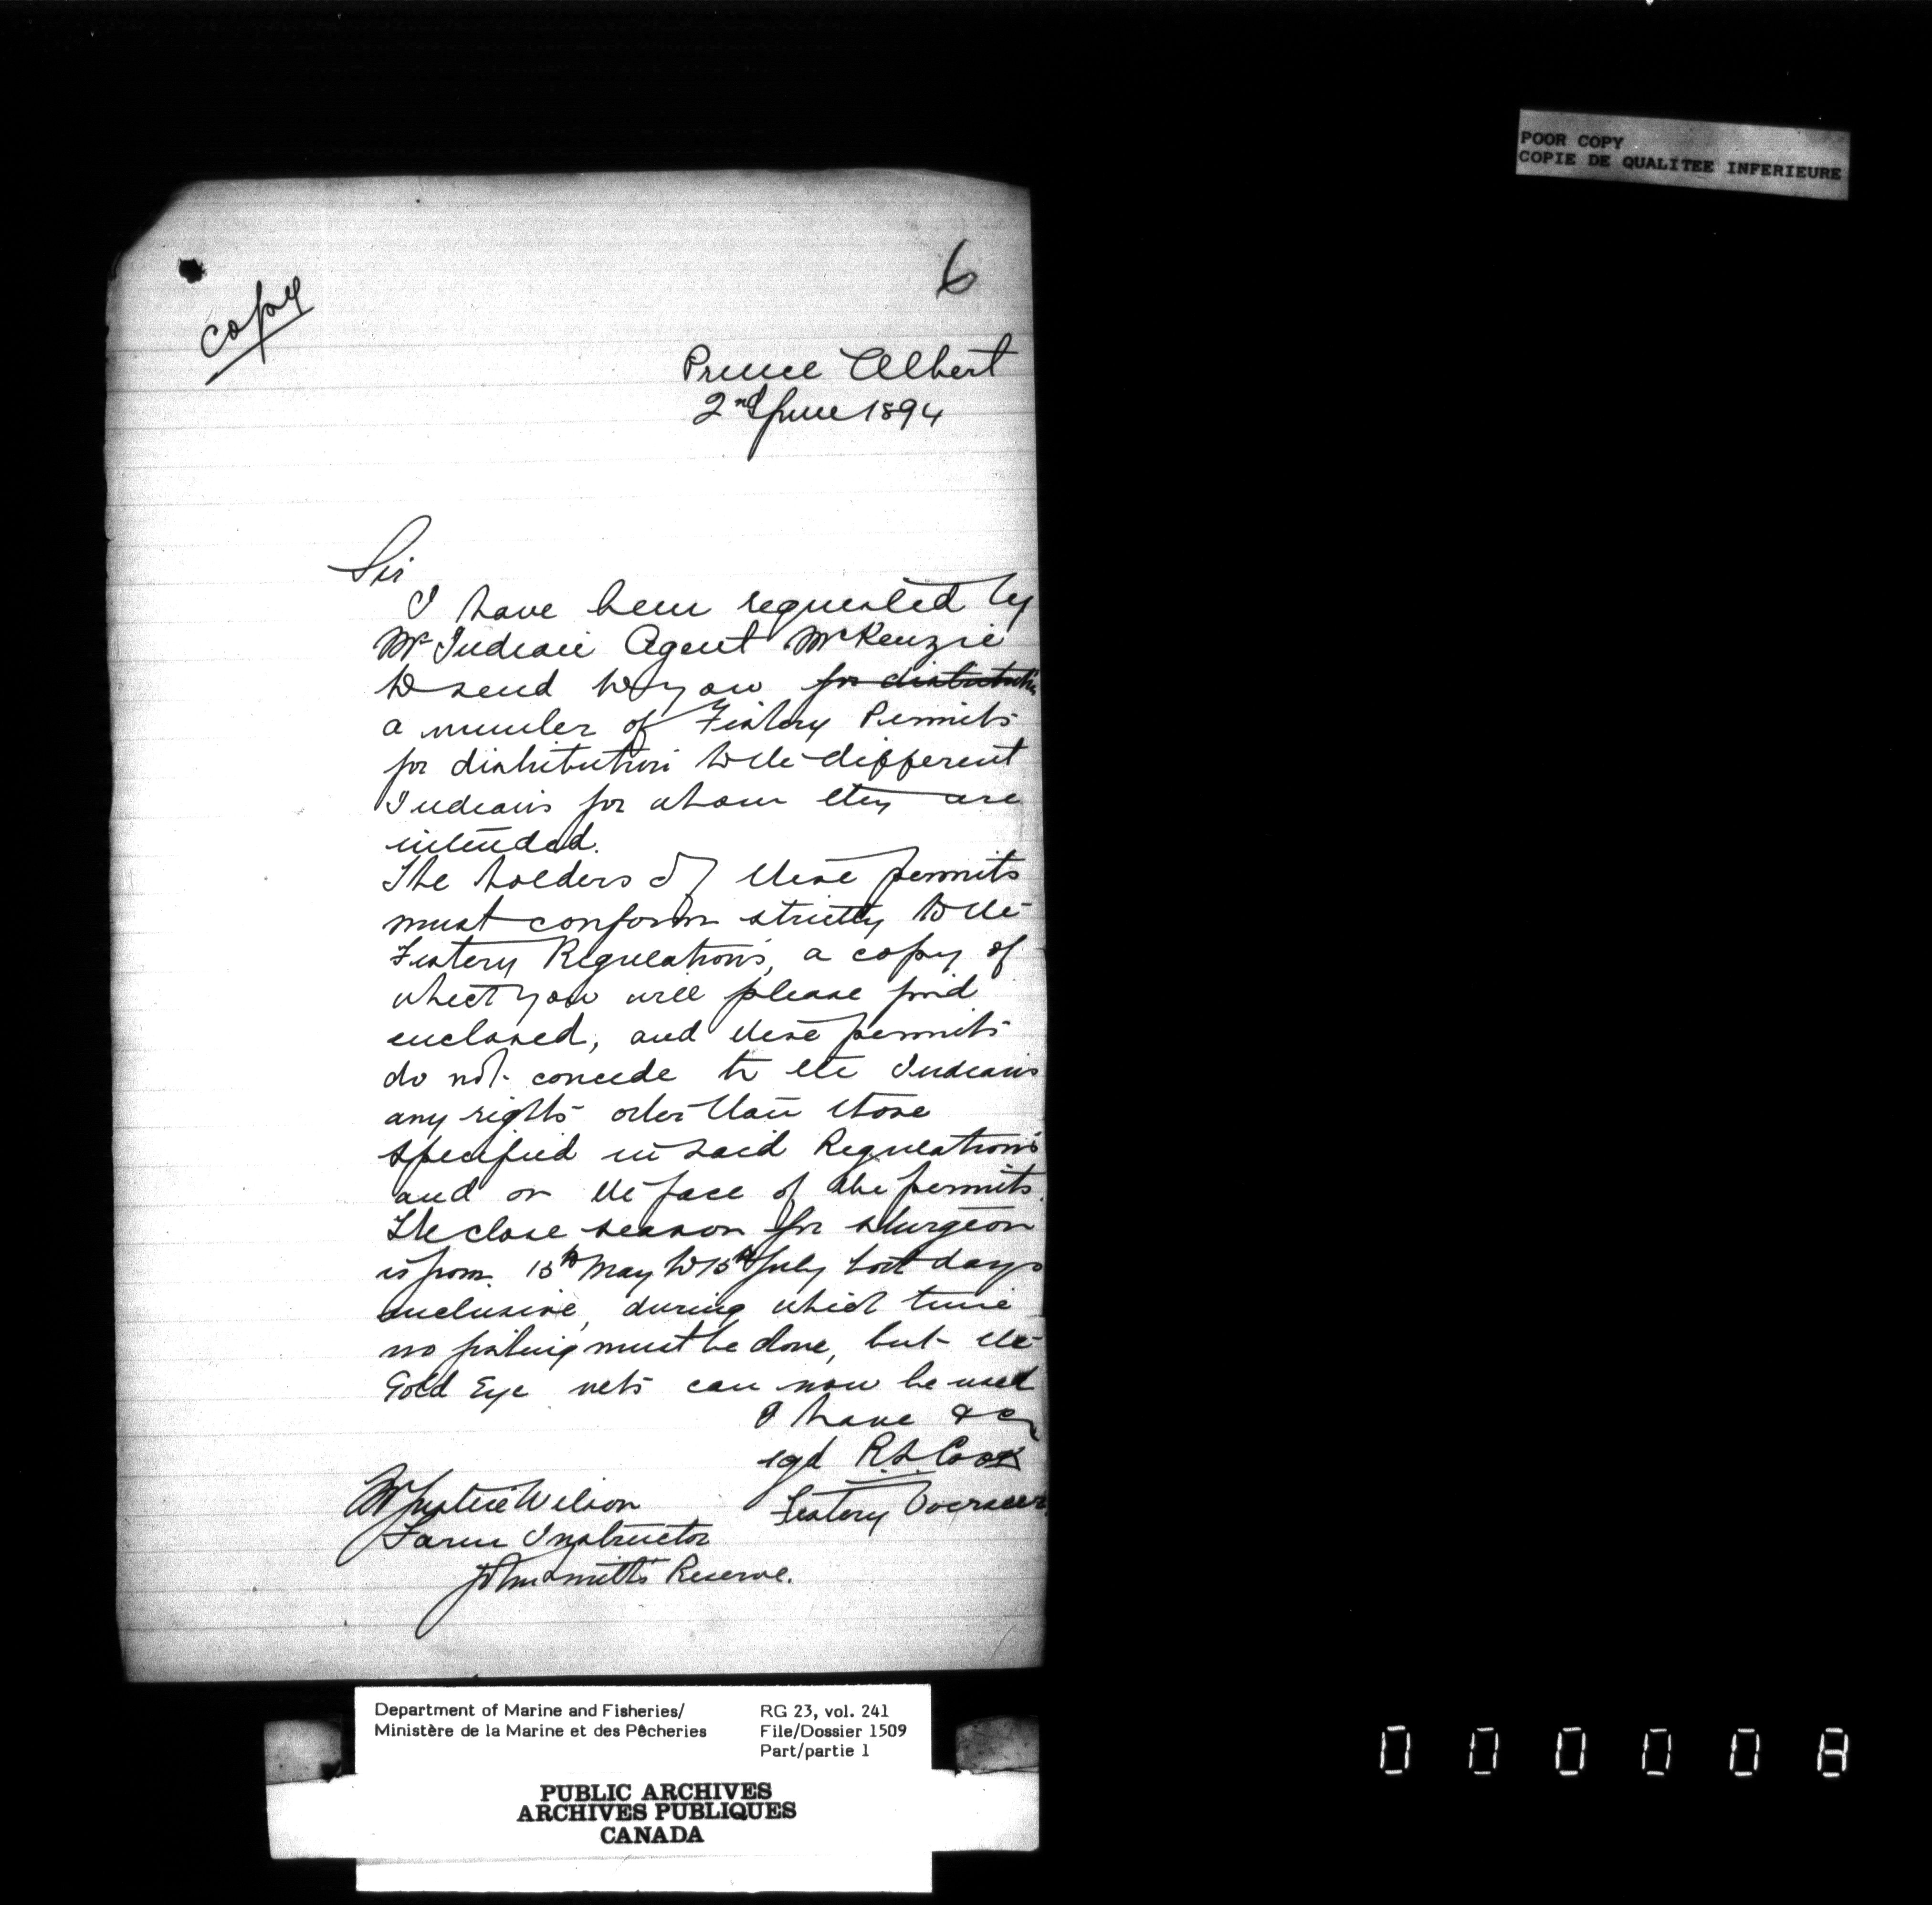 POOR COPY
COPIE DE QUALITEE INFERIEURE
6
copy
Prince Albert
2nd June 1894
Sir
I have been requested by
Mr Indian Agent McKenzie
to send to you for distribution
a number of Fishery Permits
for distribution to the different
Indians for whom they are
intended.
The holders of these permits
must conform strictly to the
Fishery Regulations, a copy of
which you will please find
enclosed, and these permits
do not concede to the Indians
any rights other than those
specified in said Regulations
and on the face of the permits.
The close season for sturgeon
is from 15th May to 15th July both days
inclusive, during which time
no fishing must be done, but the
Gold Eye nets can now be used
I have &c
sgd R.S. Cook
Fishery Overseer.
Mr Justice Wilson
Farm Instructor
John Smith's Reserve.
Department of Marine and Fisheries/
Ministère de la Marine et des Pêcheries
RG 23, vol. 241
File/Dossier 1509
Part/partie 1
PUBLIC ARCHIVES
ARCHIVES PUBLIQUES
CANADA
000008